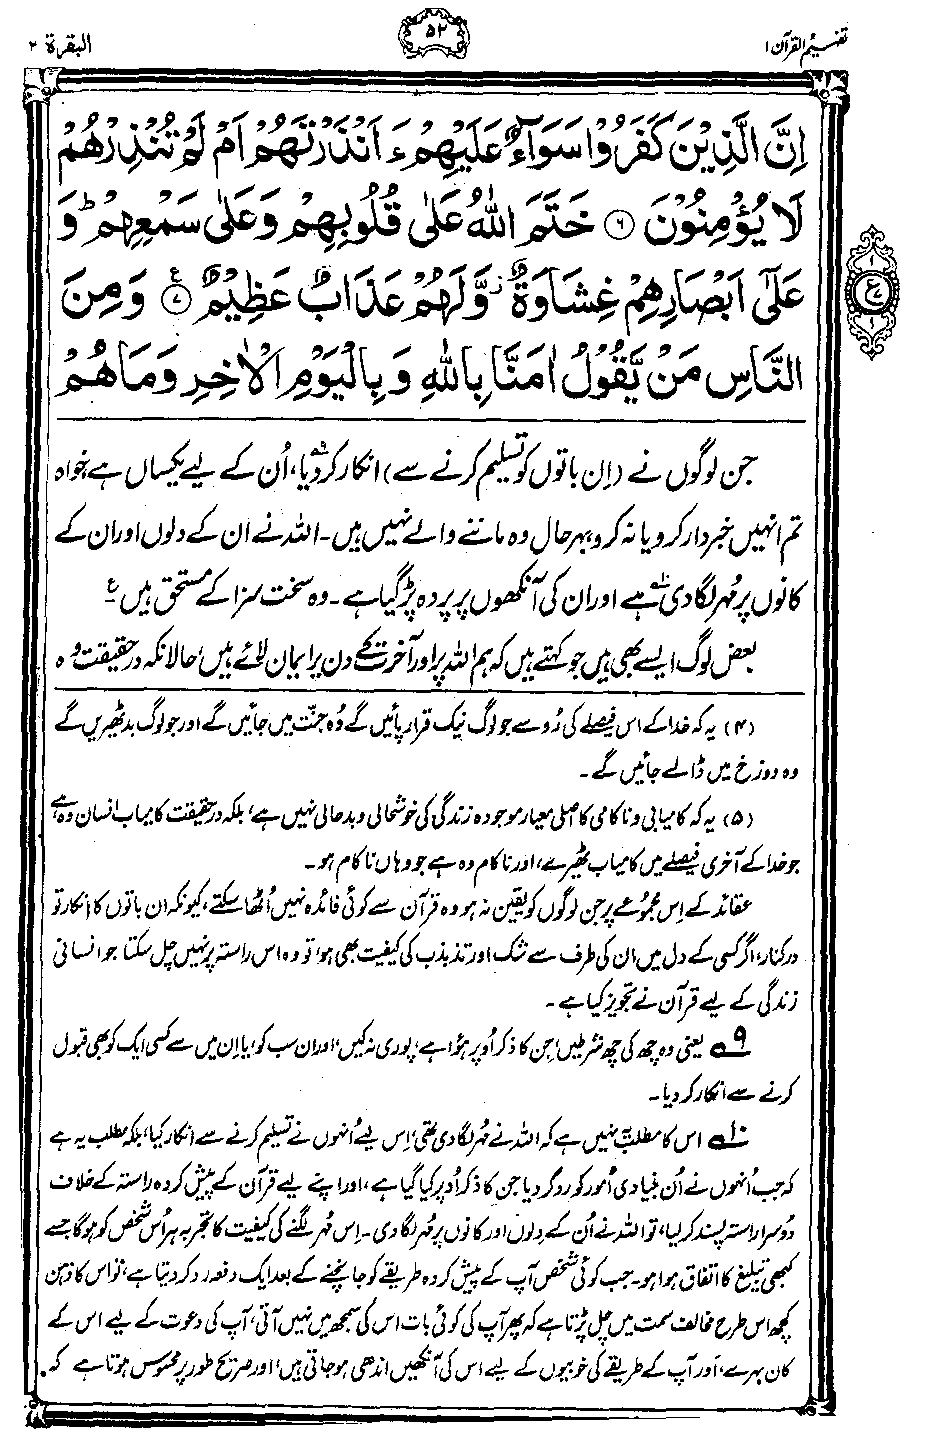 تفہیم القرآن ۱
۵۲
البقرۃ ۲
اِنَّ الَّذِيْنَ كَفَرُوْا سَوَآءٌ عَلَيْهِمْ ءَاَنْذَرْتَهُمْ اَمْ لَمْ تُنْذِرْهُمْ
لَا يُؤْمِنُوْنَ ۶ خَتَمَ اللّٰهُ عَلٰى قُلُوْبِهِمْ وَعَلٰى سَمْعِهِمْ ؕ وَ
عَلٰٓى اَبْصَارِهِمْ غِشَاوَةٌ ز وَّلَهُمْ عَذَابٌ عَظِيْمٌ ۷ ع وَمِنَ
النَّاسِ مَنْ يَّقُوْلُ اٰمَنَّا بِاللّٰهِ وَبِالْيَوْمِ الْاٰخِرِ وَمَا هُمْ
۱
ع
۱
جن لوگوں نے (اِن باتوں کو تسلیم کرنے سے) انکار کر دیا،۹ اُن کے لیے یکساں ہے، خواہ
تم انہیں خبردار کرو یا نہ کرو، بہرحال وہ ماننے والے نہیں ہیں۔ اللہ نے ان کے دلوں اور ان کے
کانوں پر مُہر لگا دی۱۰ ہے اور ان کی آنکھوں پر پردہ پڑ گیا ہے۔ وہ سخت سزا کے مستحق ہیں ؏
بعض لوگ ایسے بھی ہیں جو کہتے ہیں کہ ہم اللہ پر اور آخرت کے دن پر ایمان لائے ہیں، حالانکہ درحقیقت وہ
(۴) یہ کہ خدا کے اس فیصلے کی رُو سے جو لوگ نیک قرار پائیں گے وُہ جنّت میں جائیں گے اور جو لوگ بد ٹھیریں گے
وہ دوزخ میں ڈالے جائیں گے۔
(۵) یہ کہ کامیابی و ناکامی کا اصلی معیار موجودہ زندگی کی خوشحالی و بدحالی نہیں ہے، بلکہ درحقیقت کامیاب انسان وہ ہے
جو خدا کے آخری فیصلے میں کامیاب ٹھیرے، اور ناکام وہ ہے جو وہاں ناکام ہو۔
عقائد کے اِس مجموعے پر جن لوگوں کو یقین نہ ہو وہ قرآن سے کوئی فائدہ نہیں اُٹھا سکتے، کیونکہ ان باتوں کا انکار تو
درکنار، اگر کسی کے دل میں ان کی طرف سے شک اور تذبذب کی کیفیت بھی ہو، تو وہ اس راستہ پر نہیں چل سکتا جو انسانی
زندگی کے لیے قرآن نے تجویز کیا ہے۔
۹؎ یعنی وہ چھ کی چھ شرطیں، جِن کا ذکر اُوپر ہؤا ہے، پُوری نہ کیں، اور ان سب کو، یا اِن میں سے کسی ایک کو بھی قبول
کرنے سے انکار کر دیا۔
۱۰؎ اس کا مطلب یہ نہیں ہے کہ اللہ نے مُہر لگا دی تھی، اِس لیے اُنھوں نے تسلیم کرنے سے انکار کیا، بلکہ مطلب یہ ہے
کہ جب اُنھوں نے اُن بنیادی اُمور کو رد کر دیا جن کا ذکر اُوپر کیا گیا ہے، اور اپنے لیے قرآن کے پیش کردہ راستہ کے خلاف
دُوسرا راستہ پسند کر لیا، تو اللہ نے اُن کے دِلوں اور کانوں پر مُہر لگا دی۔ اِس مُہر لگنے کی کیفیت کا تجربہ ہر اُس شخص کو ہوگا جسے
کبھی تبلیغ کا اتفاق ہوا ہو۔ جب کوئی شخص آپ کے پیش کردہ طریقے کو جانچنے کے بعد ایک دفعہ رد کر دیتا ہے، تو اس کا ذہن
کچھ اس طرح مخالف سمت میں چل پڑتا ہے کہ پھر آپ کی کوئی بات اس کی سمجھ میں نہیں آتی، آپ کی دعوت کے لیے اس کے
کان بہرے، اور آپ کے طریقے کی خوبیوں کے لیے اس کی آنکھیں اندھی ہو جاتی ہیں، اور صریح طور پر محسوس ہوتا ہے کہ